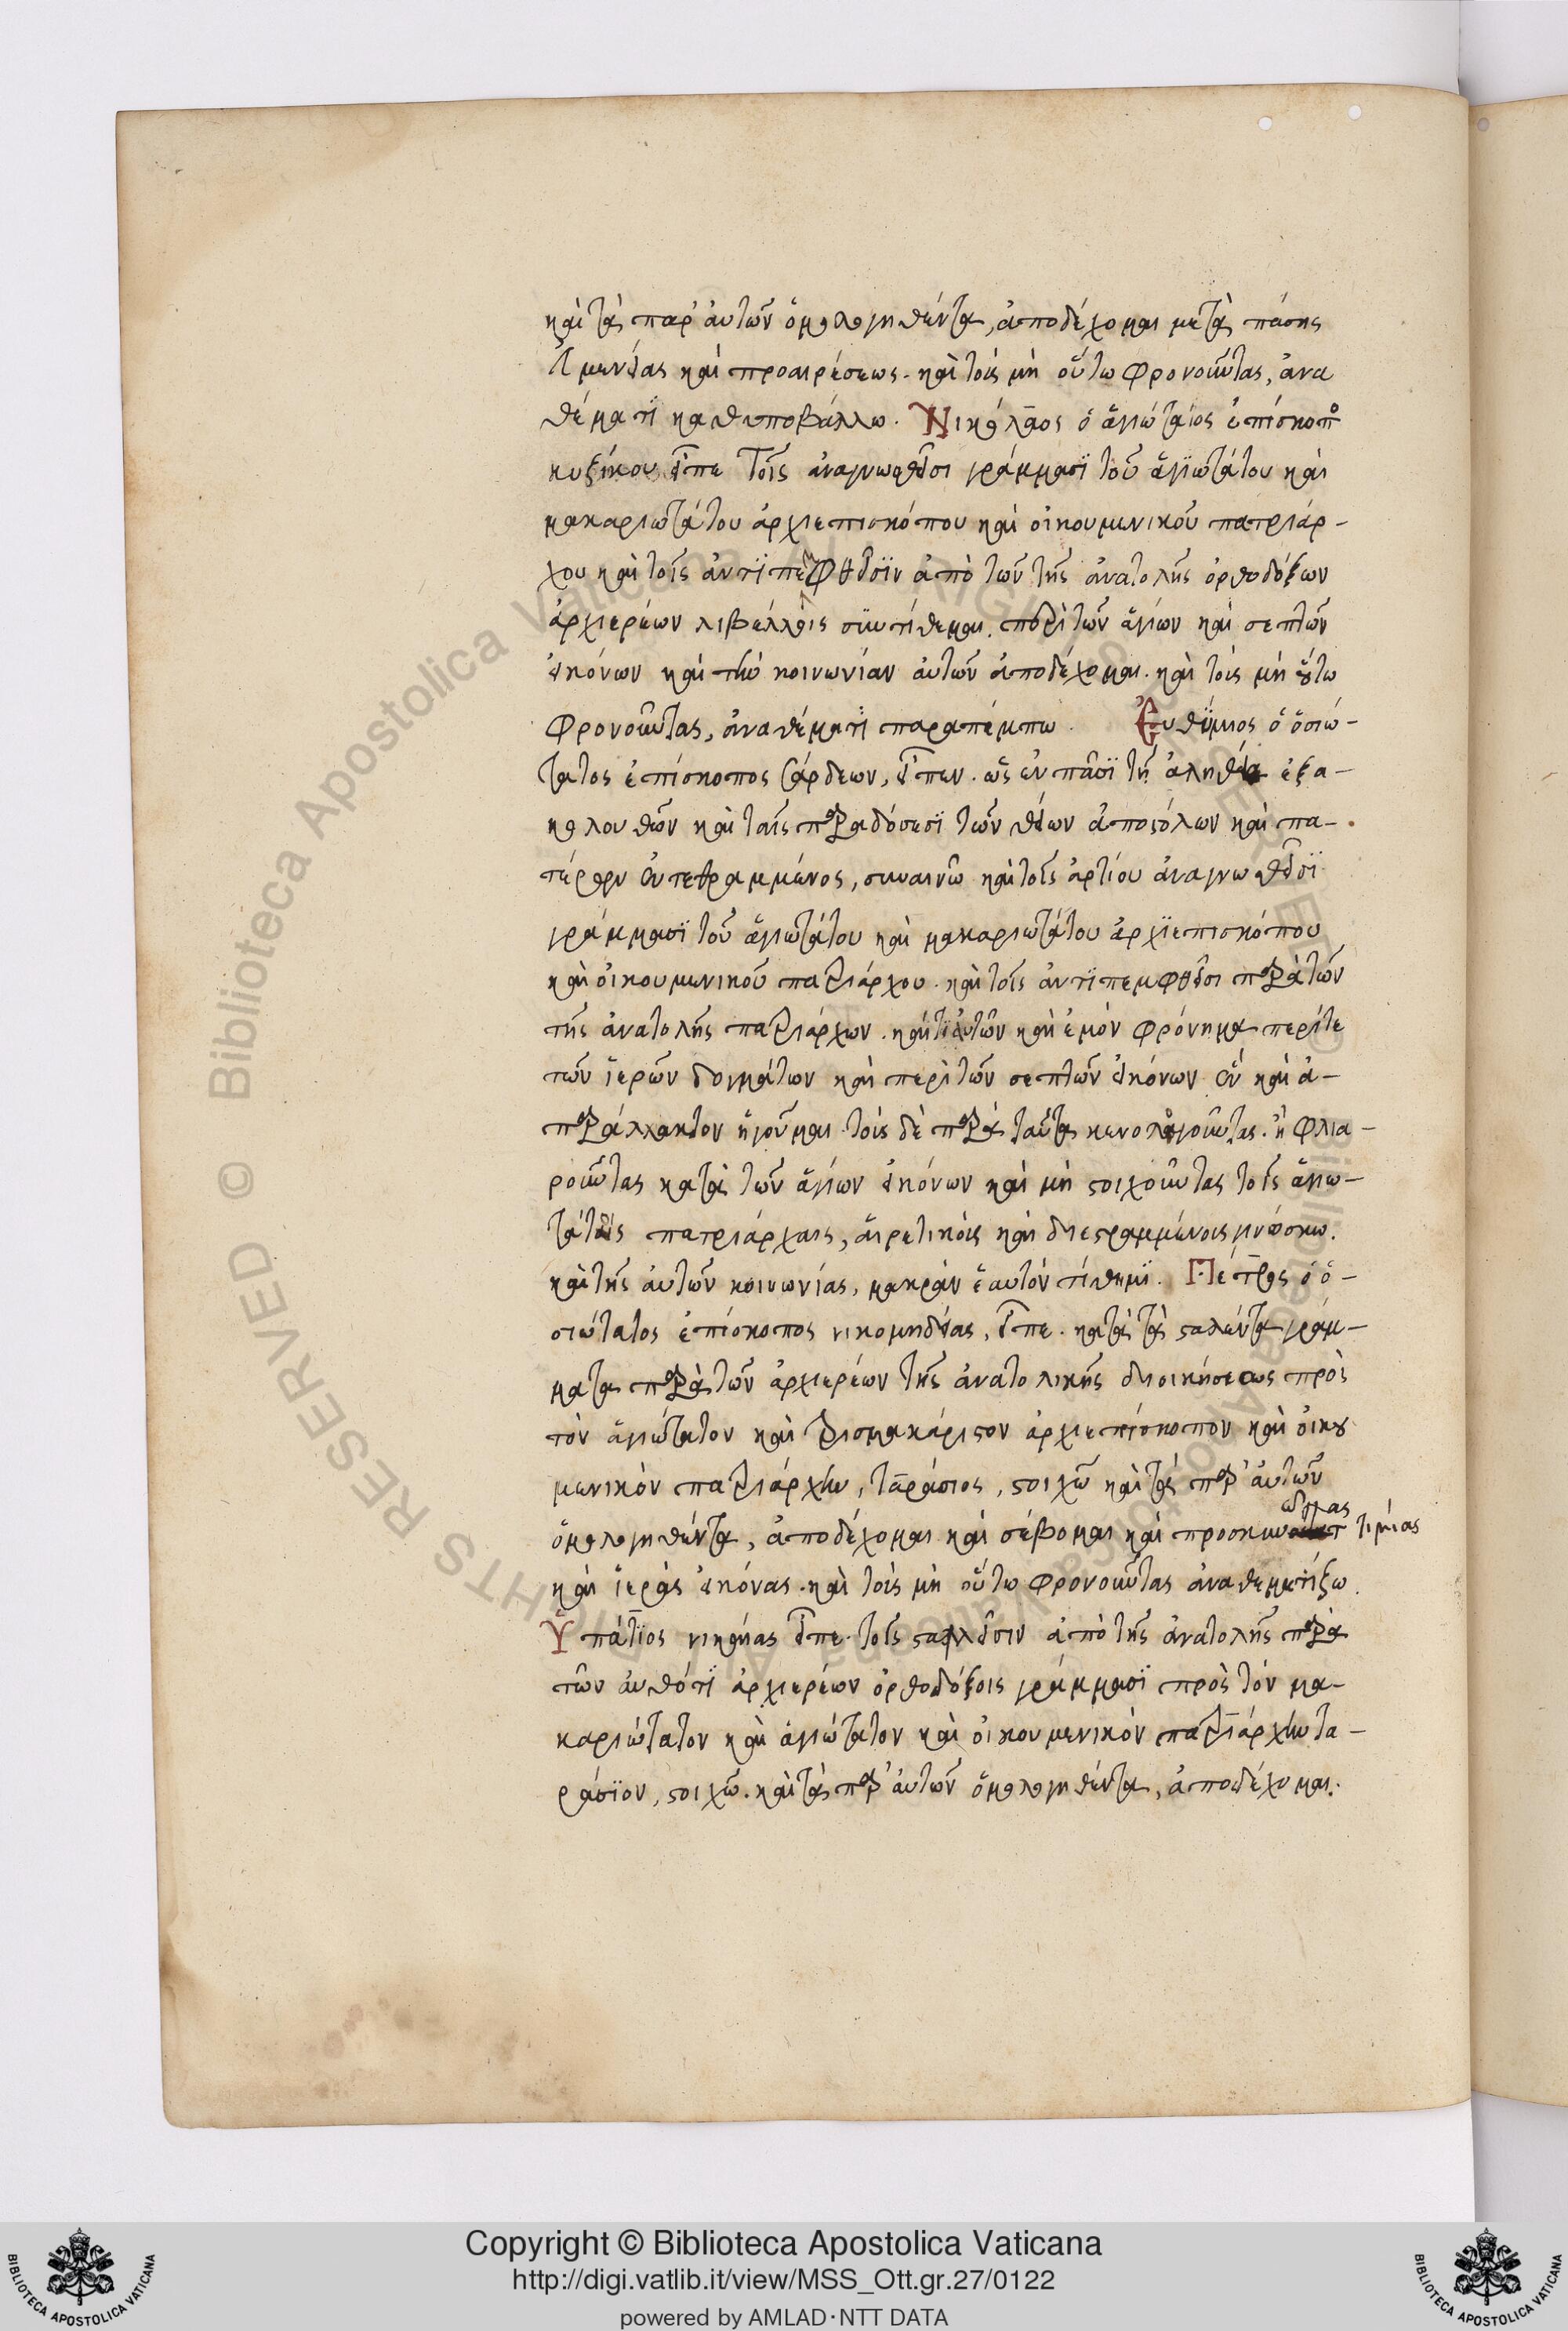 καὶ τὰ παρ' αὐτῶν ὁμολογηθέντα, ἀποδέχομαι μετὰ πάσης
εὐμενείας καὶ προαιρέσεως. καὶ τοὺς μὴ οὕτω φρονοῦντας, ἀνα
θέματι καθυποβάλλω. Νικόλαος ὁ ἁγιώτατος ἐπίσκοπος
κυζίκου εἶπε τοῖς ἀναγνωσθεῖσι γράμμασι τοῦ ἁγιωτάτου καὶ
μακαριωτάτου ἀρχιεπισκόπου καὶ οἰκουμενικοῦ πατριάρ-
χου καὶ τοῖς ἀντιπεμφθεῖσιν ἀπὸ τῶν τῆς ἀνατολῆς ὀρθοδόξων
ἀρχιερέων λιβέλλοις συντίθεμαι. περὶ τῶν ἁγίων καὶ σεπτῶν
εἰκόνων καὶ τὴν κοινωνίαν αὐτῶν ἀποδέχομαι. καὶ τοὺς μὴ οὕτω
φρονοῦντας, ἀναθέματι παραπέμπω. Εὐθύμιος ὁ ὁσιώ-
τατος ἐπίσκοπος Σάρδεων, εἶπεν. ὡς ἐν πᾶσι τῇ ἀληθείᾳ ἐξα-
κολουθῶν καὶ ταῖς παραδόσεσι τῶν θείων ἀποστόλων καὶ πα-
τέρων ἐντεθραμμένος, συναινῶ καὶ τοῖς ἀρτίου ἀναγνωσθεῖσι
γράμμασι τοῦ ἁγιωτάτου καὶ μακαριωτάτου ἀρχιεπισκόπου
καὶ οἰκουμενικοῦ πατριάρχου. καὶ τοῖς ἀντιπεμφθεῖσι παρὰ τῶν
τῆς ἀνατολῆς πατριάρχων. καὶ τὸ αὐτῶν καὶ ἐμὸν φρόνημα περί τε
τῶν ἱερῶν δογμάτων καὶ περὶ τῶν σεπτῶν εἰκόνων ἓν καὶ ἀ-
παράλλακτον ἡγοῦμαι. τοὺς δὲ παρὰ ταῦτα κενολογοῦντας. ἢ φλια-
ροῦντας κατὰ τῶν ἁγίων εἰκόνων καὶ μὴ στοιχοῦντας τοῖς ἁγιω-
τάτοις πατριάρχαις, αἱρετικοὺς καὶ διεστραμμένους γινώσκω.
καὶ τῆς αὐτῶν κοινωνίας, μακρὰν ἑαυτὸν τίθημι. Πέτρος ὁ ὁ-
σιώτατος ἐπίσκοπος νικομηδείας, εἶπε. κατὰ τὰ σταλέντα γράμ-
ματα παρὰ τῶν ἀρχιερέων τῆς ἀνατολικῆς διοικήσεως πρὸς
τὸν ἁγιώτατον καὶ τρισμακάριστον ἀρχιεπίσκοπον καὶ οἰκου
μενικὸν πατριάρχην, ταράσιος, στοιχῶ καὶ τὰ παρ' αὐτῶν
ὁμολογηθέντα, ἀποδέχομαι καὶ σέβομαι καὶ προσκυνῶ τὰς τιμίας
καὶ ἱερὰς εἰκόνας. καὶ τοὺς μὴ οὕτω φρονοῦντας ἀναθεματίζω.
Ὑπάτιος νικαίας εἶπε. τοῖς σταλεῖσιν ἀπὸ τῆς ἀνατολῆς παρὰ
τῶν αὐθότι ἀρχιερέων ὀρθοδόξοις γράμμασι πρὸς τὸν μα-
καριώτατον καὶ ἁγιώτατον καὶ οἰκουμενικὸν πατριάρχην τα-
ράσιον, στοιχῶ. καὶ τὰ παρ' αὐτῶν ὁμολογηθέντα, ἀποδέχομαι.
Copyright © Biblioteca Apostolica Vaticana
http://digi.vatlib.it/view/MSS_Ott.gr.27/0122
powered by AMLAD·NTT DATA